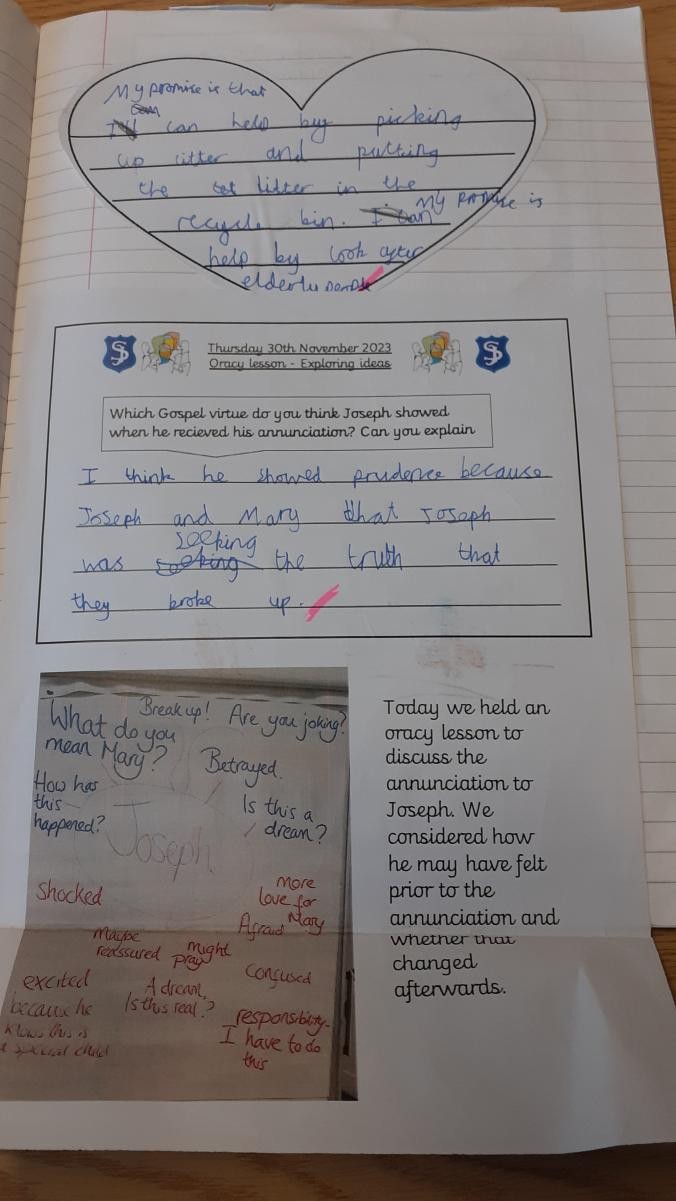 My promise is that
I can help by picking
up litter and putting
the litter in the
recycle bin. I can My promise is
help by look after
elderly people
SJ
Thursday 30th November 2023
Oracy lesson - Exploring ideas
SJ
Which Gospel virtue do you think Joseph showed
when he recieved his annunciation? Can you explain
I think he showed prudence because
Joseph and Mary that Joseph
seeking
was seeking the truth that
they broke up.
What do you
mean Mary?
Break up!
Are you joking?
How has
this
happened?
Betrayed.
Is this a
dream?
Joseph
shocked
more
love for
Mary
Maybe
reassured
might
pray
Afraid
confused
excited
because he
knows this is
a special child
A dream,
Is this real?
responsibility-
I have to do
this
Today we held an
oracy lesson to
discuss the
annunciation to
Joseph. We
considered how
he may have felt
prior to the
annunciation and
whether that
changed
afterwards.